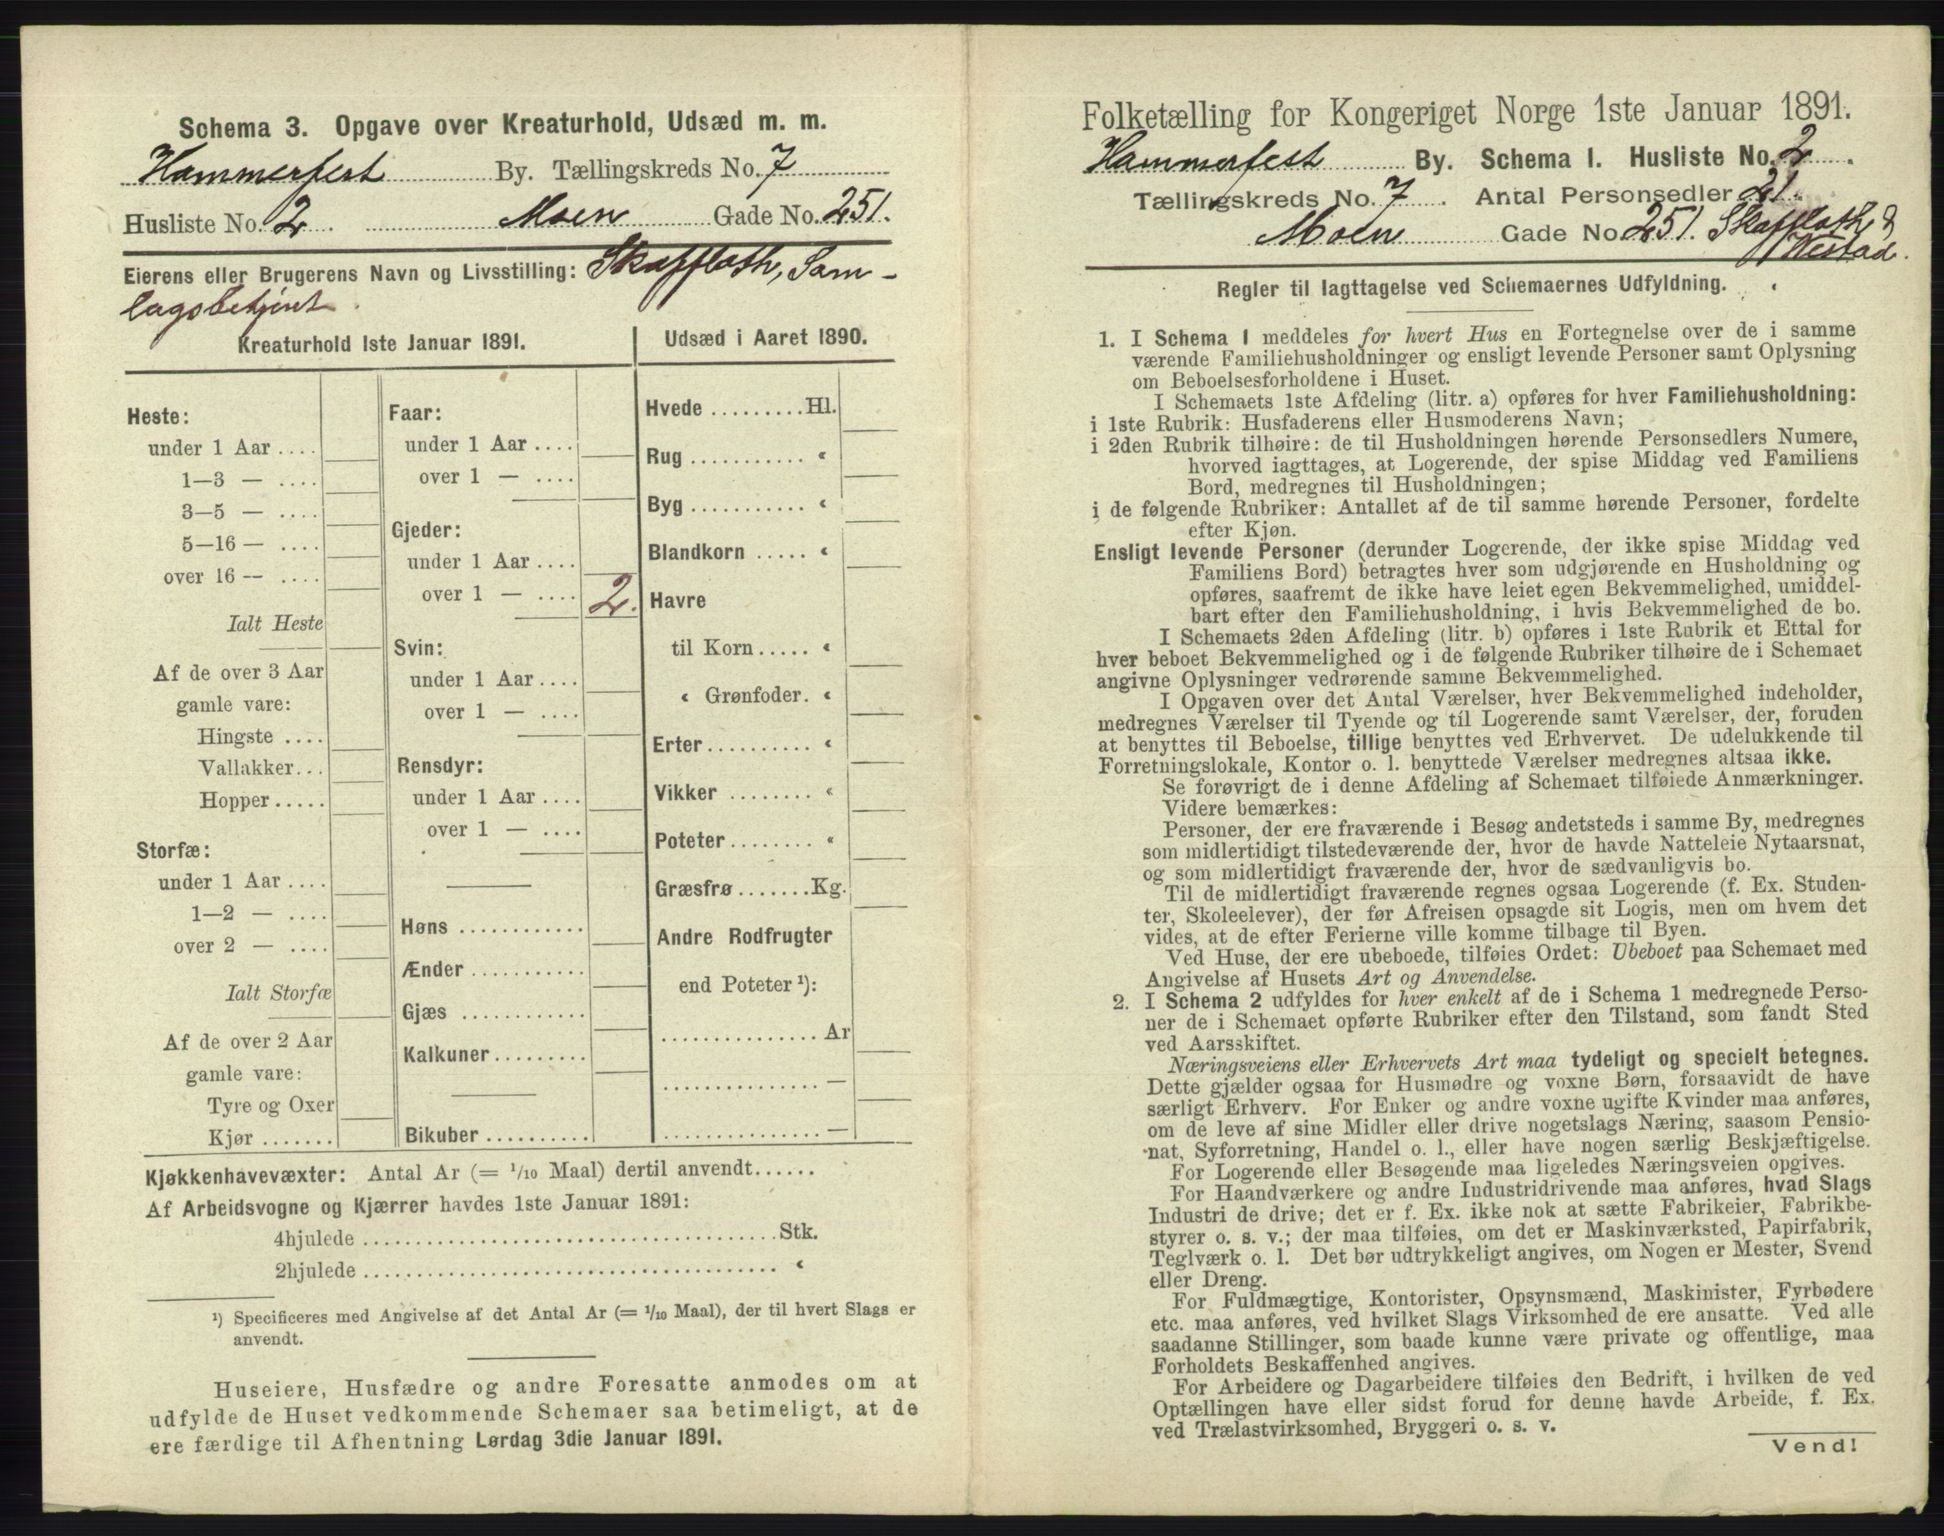 Schema 3. Opgave over Kreaturhold, Udsæd m. m.
Hammerfest By. Tællingskreds No. 7
Husliste No. 2. Moen Gade No. 251.
Eierens eller Brugerens Navn og Livsstilling: Skaffloth, Sam-
lagsbetjent.
Kreaturhold 1ste Januar 1891.
Heste:
under 1 Aar ....
1—3 — ....
3—5 — ....
5—16 — ....
over 16 — ....
Ialt Heste
Af de over 3 Aar
gamle vare:
Hingste ....
Vallakker...
Hopper .....
Storfæ:
under 1 Aar ....
1—2 — ....
over 2 — ....
Ialt Storfæ
Af de over 2 Aar
gamle vare:
Tyre og Oxer
Kjør .......
Faar:
under 1 Aar ....
over 1 — ....
Gjeder:
under 1 Aar ....
over 1 — .... 2.
Svin:
under 1 Aar ....
over 1 — ....
Rensdyr:
under 1 Aar ....
over 1 — ....
Høns ............
Ænder ...........
Gjæs ............
Kalkuner.........
Bikuber ..........
Udsæd i Aaret 1890.
Hvede .........Hl.
Rug ........... «
Byg ........... «
Blandkorn ..... «
Havre
til Korn ..... «
« Grønfoder. «
Erter.......... «
Vikker ........ «
Poteter........ «
Græsfrø .......Kg.
Andre Rodfrugter
end Poteter ¹):
............... Ar
............... —
............... —
Kjøkkenhavevæxter: Antal Ar (= 1/10 Maal) dertil anvendt......
Af Arbeidsvogne og Kjærrer havdes 1ste Januar 1891:
4hjulede ........................................Stk.
2hjulede ........................................ «
¹) Specificeres med Angivelse af det Antal Ar (= 1/10 Maal), der til hvert Slags er
anvendt.
Huseiere, Husfædre og andre Foresatte anmodes om at
udfylde de Huset vedkommende Schemaer saa betimeligt, at de
ere færdige til Afhentning Lørdag 3die Januar 1891.
Folketælling for Kongeriget Norge 1ste Januar 1891.
Hammerfest By. Schema 1. Husliste No. 2.
Tællingskreds No. 7. Antal Personsedler 21.
Moen Gade No. 251. Skaffloth &
Westad.
Regler til Iagttagelse ved Schemaernes Udfyldning.
1. I Schema 1 meddeles for hvert Hus en Fortegnelse over de i samme
værende Familiehusholdninger og ensligt levende Personer samt Oplysning
om Beboelsesforholdene i Huset.
I Schemaets 1ste Afdeling (litr. a) opføres for hver Familiehusholdning:
i 1ste Rubrik: Husfaderens eller Husmoderens Navn;
i 2den Rubrik tilhøire: de til Husholdningen hørende Personsedlers Numere,
hvorved iagttages, at Logerende, der spise Middag ved Familiens
Bord, medregnes til Husholdningen;
i de følgende Rubriker: Antallet af de til samme hørende Personer, fordelte
efter Kjøn.
Ensligt levende Personer (derunder Logerende, der ikke spise Middag ved
Familiens Bord) betragtes hver som udgjørende en Husholdning og
opføres, saafremt de ikke have leiet egen Bekvemmelighed, umiddel-
bart efter den Familiehusholdning, i hvis Bekvemmelighed de bo.
I Schemaets 2den Afdeling (litr. b) opføres i 1ste Rubrik et Ettal for
hver beboet Bekvemmelighed og i de følgende Rubriker tilhøire de i Schemaet
angivne Oplysninger vedrørende samme Bekvemmelighed.
I Opgaven over det Antal Værelser, hver Bekvemmelighed indeholder,
medregnes Værelser til Tyende og til Logerende samt Værelser, der, foruden
at benyttes til Beboelse, tillige benyttes ved Erhvervet. De udelukkende til
Forretningslokale, Kontor o. l. benyttede Værelser medregnes altsaa ikke.
Se forøvrigt de i denne Afdeling af Schemaet tilføiede Anmærkninger.
Videre bemærkes:
Personer, der ere fraværende i Besøg andetsteds i samme By, medregnes
som midlertidigt tilstedeværende der, hvor de havde Natteleie Nytaarsnat,
og som midlertidigt fraværende der, hvor de sædvanligvis bo.
Til de midlertidigt fraværende regnes ogsaa Logerende (f. Ex. Studen-
ter, Skoleelever), der før Afreisen opsagde sit Logis, men om hvem det
vides, at de efter Ferierne ville komme tilbage til Byen.
Ved Huse, der ere ubeboede, tilføies Ordet: Ubeboet paa Schemaet med
Angivelse af Husets Art og Anvendelse.
2. I Schema 2 udfyldes for hver enkelt af de i Schema 1 medregnede Perso-
ner de i Schemaet opførte Rubriker efter den Tilstand, som fandt Sted
ved Aarsskiftet.
Næringsveiens eller Erhvervets Art maa tydeligt og specielt betegnes.
Dette gjælder ogsaa for Husmødre og voxne Børn, forsaavidt de have
særligt Erhverv. For Enker og andre voxne ugifte Kvinder maa anføres,
om de leve af sine Midler eller drive nogetslags Næring, saasom Pensio-
nat, Syforretning, Handel o. l., eller have nogen særlig Beskjæftigelse.
For Logerende eller Besøgende maa ligeledes Næringsveien opgives.
For Haandværkere og andre Industridrivende maa anføres, hvad Slags
Industri de drive; det er f. Ex. ikke nok at sætte Fabrikeier, Fabrikbe-
styrer o. s. v.; der maa tilføies, om det er Maskinværksted, Papirfabrik,
Teglværk o. l. Det bør udtrykkeligt angives, om Nogen er Mester, Svend
eller Dreng.
For Fuldmægtige, Kontorister, Opsynsmænd, Maskinister, Fyrbødere
etc. maa anføres, ved hvilket Slags Virksomhed de ere ansatte. Ved alle
saadanne Stillinger, som baade kunne være private og offentlige, maa
Forholdets Beskaffenhed angives.
For Arbeidere og Dagarbeidere tilføies den Bedrift, i hvilken de ved
Optællingen have eller sidst forud for denne havde Arbeide, f. Ex.
ved Trælastvirksomhed, Bryggeri o. s. v.
Vend!